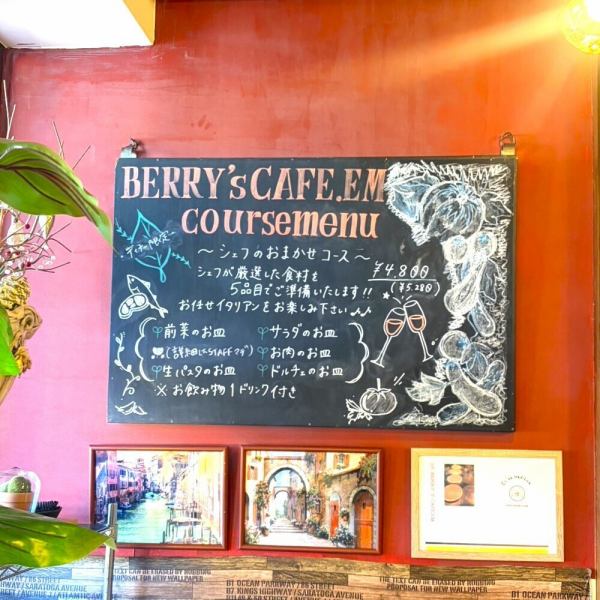 BERRY'S CAFE.EM
coursemenu
ディナー限定
～シェフのおまかせコース～
シェフが厳選した食材を
5品目でご準備いたします!!
お任せイタリアンをお楽しみ下さい♪♪
¥4,800
(¥5,280)
前菜のお皿
サラダのお皿
(詳細はSTAFFマデ)
お肉のお皿
生パスタのお皿
ドルチェのお皿
※お飲み物1ドリンク付き
THE TEXT CAN BE ERASED BY RUBBING
PROPOSAL FOR NEW WALLPAPER
B1 OCEAN PARKWAY
B7 KINGS HIGHWAY / SARATOGA AVENUE